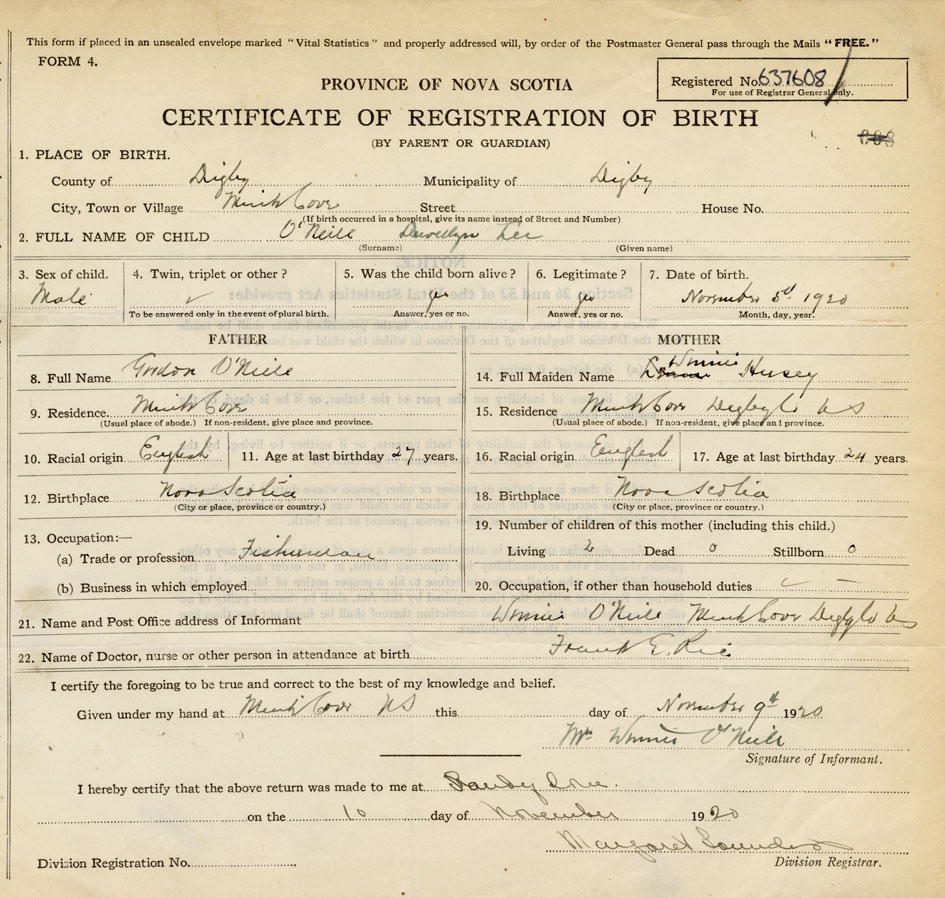 This form if placed in an unsealed envelope marked "Vital Statistics" and properly addressed will, by order of the Postmaster General pass through the Mails "FREE."
FORM 4.
PROVINCE OF NOVA SCOTIA
Registered No. 637608
For use of Registrar General only.
CERTIFICATE OF REGISTRATION OF BIRTH
(BY PARENT OR GUARDIAN)
1. PLACE OF BIRTH.
County of Digby Municipality of Digby
City, Town or Village Mink Cove Street House No.
(If birth occurred in a hospital, give its name instead of Street and Number)
2. FULL NAME OF CHILD O'Neill Llewellyn Lee
(Surname) (Given name)
3. Sex of child. 4. Twin, triplet or other? 5. Was the child born alive? 6. Legitimate? 7. Date of birth.
Male yes yes November 5th 1920
To be answered only in the event of plural birth. Answer, yes or no. Answer, yes or no. Month, day, year.
FATHER MOTHER
8. Full Name Gordon O'Neill
14. Full Maiden Name Winnie Hersey
9. Residence. Mink Cove
(Usual place of abode.) If non-resident, give place and province.
15. Residence Mink Cove Digby Co NS
(Usual place of abode.) If non-resident, give place and province.
10. Racial origin English 11. Age at last birthday 27 years.
16. Racial origin English 17. Age at last birthday 24 years.
12. Birthplace Nova Scotia
(City or place, province or country.)
18. Birthplace Nova Scotia
(City or place, province or country.)
13. Occupation:—
(a) Trade or profession Fisherman
(b) Business in which employed
19. Number of children of this mother (including this child.)
Living 2 Dead 0 Stillborn 0
20. Occupation, if other than household duties —
21. Name and Post Office address of Informant Winnie O'Neill Mink Cove Digby Co NS
22. Name of Doctor, nurse or other person in attendance at birth Frank E. Rice
I certify the foregoing to be true and correct to the best of my knowledge and belief.
Given under my hand at Mink Cove NS this day of November 9th 1920
Mrs Winnie O'Neill
Signature of Informant.
I hereby certify that the above return was made to me at Sandy Cove.
on the 10 day of November 1920
Margaret Saunders
Division Registration No. Division Registrar.